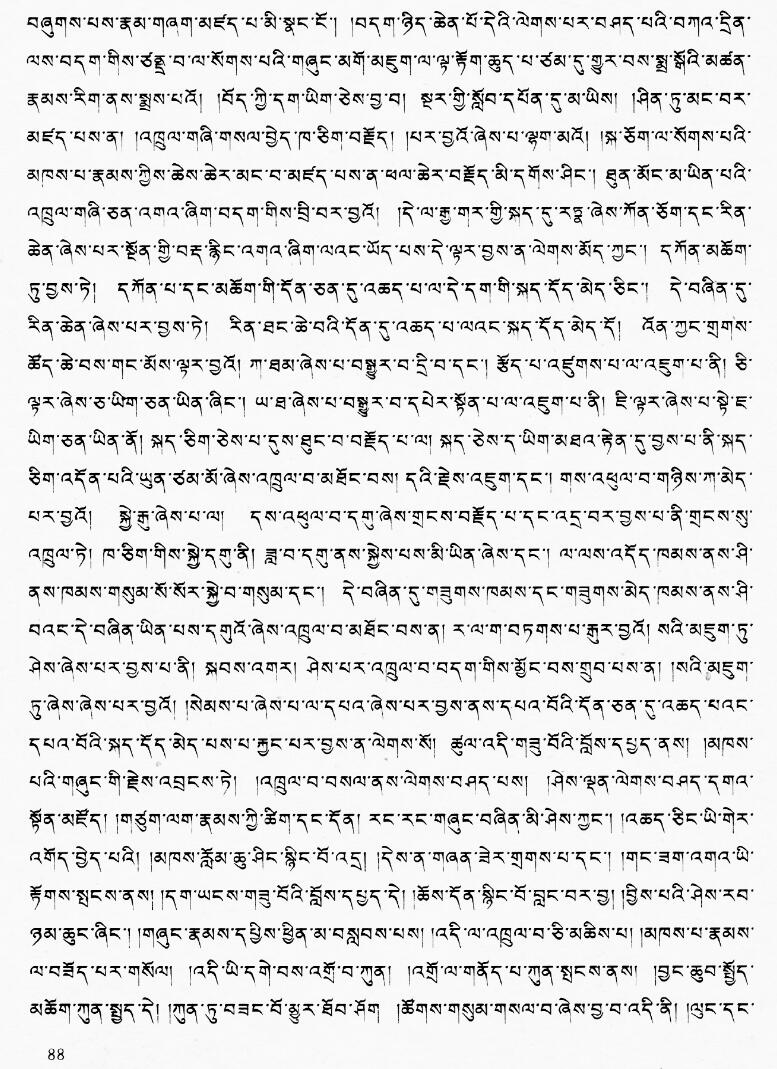 བཞུགས་པས་རྣམ་གཞག་མཛད་པ་མི་སྣང་ངོ་། །བདག་ཉིད་ཆེན་པོ་དེའི་ལེགས་པར་བཤད་པའི་བཀའ་དྲིན་
ལས་བདག་གིས་ཙནྡྲ་བ་ལ་སོགས་པའི་གཞུང་མགོ་མཇུག་ལ་ལྟ་རྟོག་ཆུད་པ་ཙམ་དུ་གྱུར་བས་སྨྲ་སྒོའི་མཚན་
རྣམས་རིག་ནས་སྨྲས་པའོ། །བོད་ཀྱི་དག་ཡིག་ཅེས་བྱ་བ། སྔར་གྱི་སློབ་དཔོན་དུ་མ་ཡིས། །ཤིན་ཏུ་མང་བར་
མཛད་པས་ན། །འཁྲུལ་གཞི་གསལ་བྱེད་ཁ་ཅིག་བརྗོད། །པར་བྱའོ་ཞེས་པ་ལྷག་མའོ། །སྐ་ཅོག་ལ་སོགས་པའི་
མཁས་པ་རྣམས་ཀྱིས་ཆེས་ཆེར་མང་བ་མཛད་པས་ན་ཕལ་ཆེར་བརྗོད་མི་དགོས་ཤིང་། ཐུན་མོང་མ་ཡིན་པའི་
འཁྲུལ་གཞི་ཅན་འགའ་ཞིག་བདག་གིས་བྲི་བར་བྱའོ། །དེ་ལ་རྒྱ་གར་གྱི་སྐད་དུ་རཏྣ་ཞེས་ཀོན་ཅོག་དང་རིན་
ཆེན་ཞེས་པར་སྔོན་གྱི་བརྡ་རྙིང་འགའ་ཞིག་ལའང་ཡོད་པས་དེ་ལྟར་བྱས་ན་ལེགས་མོད་ཀྱང་། དཀོན་མཆོག་
ཏུ་བྱས་ཏེ། དཀོན་པ་དང་མཆོག་གི་དོན་ཅན་དུ་འཆད་པ་ལ་དེ་དག་གི་སྐད་དོད་མེད་ཅིང་། དེ་བཞིན་དུ་
རིན་ཆེན་ཞེས་པར་བྱས་ཏེ། རིན་ཐང་ཆེ་བའི་དོན་དུ་འཆད་པ་ལའང་སྐད་དོད་མེད་དོ། འོན་ཀྱང་གྲགས་
ཚོད་ཆེ་བས་གང་མོས་ལྟར་བྱའོ། ཀ་ཐམ་ཞེས་པ་བསྒྱུར་བ་དྲི་བ་དང་། རྩོད་པ་འཛུགས་པ་ལ་འཇུག་པ་ནི། ཅི་
ལྟར་ཞེས་ཅ་ཡིག་ཅན་ཡིན་ཞིང་། ཡ་ཐ་ཞེས་པ་བསྒྱུར་བ་དཔེར་སྟོན་པ་ལ་འཇུག་པ་ནི། ཇི་ལྟར་ཞེས་པ་སྟེ་ཇ་
ཡིག་ཅན་ཡིན་ནོ། སྐད་ཅིག་ཅེས་པ་དུས་ཐུང་བ་བརྗོད་པ་ལ། སྐད་ཅེས་ད་ཡིག་མཐའ་རྟེན་དུ་བྱས་པ་ནི་སྐད་
ཅིག་འདོན་པའི་ཡུན་ཙམ་མོ་ཞེས་འཁྲུལ་བ་མཐོང་བས། དའི་རྗེས་འཇུག་དང་། གས་འཕུལ་བ་གཉིས་ཀ་མེད་
པར་བྱའོ། སྐྱེ་རྒུ་ཞེས་པ་ལ། དས་འཕུལ་བ་དགུ་ཞེས་གྲངས་བརྗོད་པ་དང་འདྲ་བར་བྱས་པ་ནི་གྲངས་སུ་
འཁྲུལ་ཏེ། ཁ་ཅིག་གིས་སྐྱེ་དགུ་ནི། ཟླ་བ་དགུ་ནས་སྐྱེས་པས་མི་ཡིན་ཞེས་དང་། ལ་ལས་འདོད་ཁམས་ནས་ཤི་
ནས་ཁམས་གསུམ་སོ་སོར་སྐྱེ་བ་གསུམ་དང་། དེ་བཞིན་དུ་གཟུགས་ཁམས་དང་གཟུགས་མེད་ཁམས་ནས་ཤི་
བའང་དེ་བཞིན་ཡིན་པས་དགུའོ་ཞེས་འཁྲུལ་བ་མཐོང་བས་ན། ར་ལ་ག་བཏགས་པ་རྒུར་བྱའོ། སའི་མཇུག་ཏུ་
ཤེས་ཞེས་པར་བྱས་པ་ནི། སྐབས་འགར། ཤེས་པར་འཁྲུལ་བ་བདག་གིས་མྱོང་བས་གྲུབ་པས་ན། །སའི་མཇུག་
ཏུ་ཞེས་ཞེས་པར་བྱའོ། །སེམས་པ་ཞེས་པ་ལ་དཔའ་ཞེས་པར་བྱས་ནས་དཔའ་བོའི་དོན་ཅན་དུ་འཆད་པའང་
དཔའ་བོའི་སྐད་དོད་མེད་པས་པ་རྐྱང་པར་བྱས་ན་ལེགས་སོ། ཚུལ་འདི་གཟུ་བོའི་བློས་དཔྱད་ནས། །མཁས་
པའི་གཞུང་གི་རྗེས་འབྲངས་ཏེ། །འཁྲུལ་བ་བསལ་ནས་ལེགས་བཤད་པས། །ཤེས་ལྡན་ལེགས་བཤད་དགའ་
སྟོན་མཛོད། །གཙུག་ལག་རྣམས་ཀྱི་ཚིག་དང་དོན། རང་རང་གཞུང་བཞིན་མི་ཤེས་ཀྱང་། །འཆད་ཅིང་ཡི་གེར་
འགོད་བྱེད་པའི། །མཁས་རློམ་ཆུ་ཤིང་སྙིང་བོ་འདྲ། །དེས་ན་གཞན་ཟེར་གྲགས་པ་དང་། །གང་ཟག་འགའ་ཡི་
རྟོགས་སྤངས་ནས། །དག་ཡངས་གཟུ་བོའི་བློས་དཔྱད་དེ། །ཆོས་དོན་སྙིང་པོ་བླང་བར་བྱ། །བྱིས་པའི་ཤེས་རབ་
ཉམ་ཆུང་ཞིང་། །གཞུང་རྣམས་དཔྱིས་ཕྱིན་མ་བསླབས་པས། །འདི་ལ་འཁྲུལ་བ་ཅི་མཆིས་པ། །མཁས་པ་རྣམས་
ལ་བཟོད་པར་གསོལ། །འདི་ཡི་དགེ་བས་འགྲོ་བ་ཀུན། །འགྲོ་ལ་གནོད་པ་ཀུན་སྤངས་ནས། །བྱང་ཆུབ་སྤྱོད་
མཆོག་ཀུན་སྤྱད་དེ། །ཀུན་ཏུ་བཟང་བོ་མྱུར་ཐོབ་ཤོག །ཚོགས་གསུམ་གསལ་བ་ཞེས་བྱ་བ་འདི་ནི། །ལུང་དང་
88